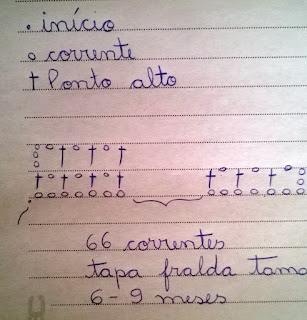 • início
o corrente
† Ponto alto
66 correntes
tapa fralda tama
6-9 meses